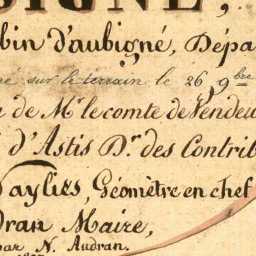 IGNÉ,
bin d'aubigné, Dépa
ré sur le terrain le 26 9.bre
n de M.r le comte de Vendeu
d'Astis D.r des Contrib
Vaylies, Géomètre en chef
dran Maire,
par N. Audran.